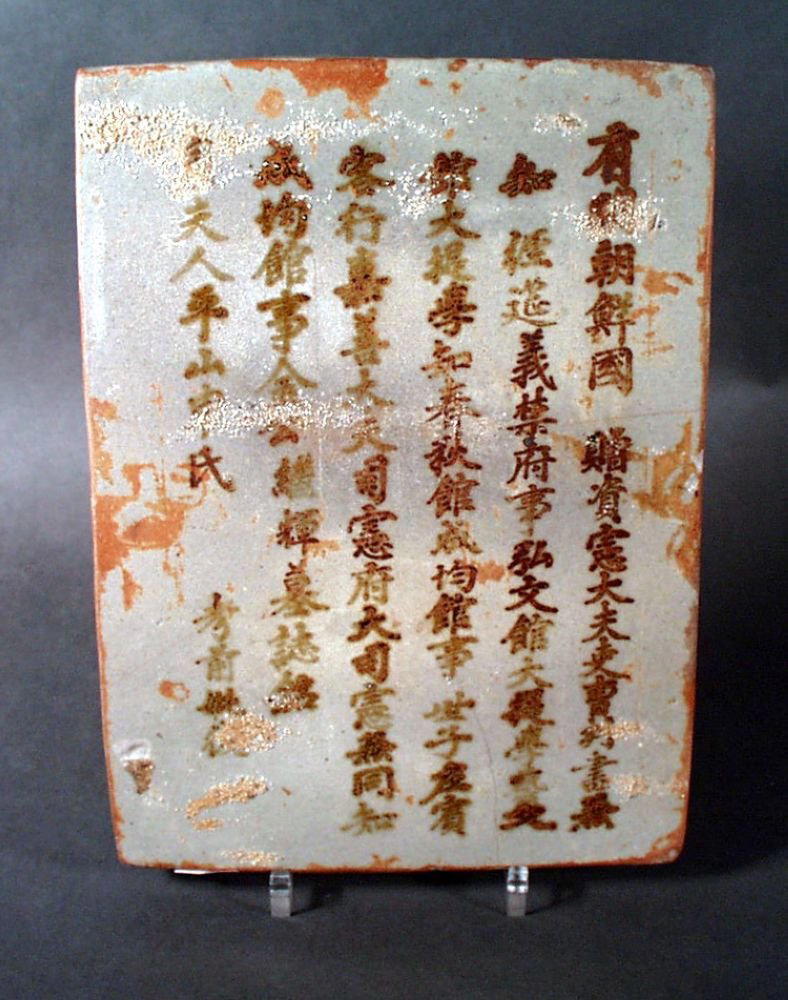 有明朝鮮國 贈資憲大夫吏曹判書兼
知 經筵義禁府事弘文館大提學藝文
館大提學知春秋館成均館事 世子左賓
客行嘉善大夫司憲府大司憲兼同知
成均館事金公繼輝墓誌銘
夫人平山申氏 考前妣後